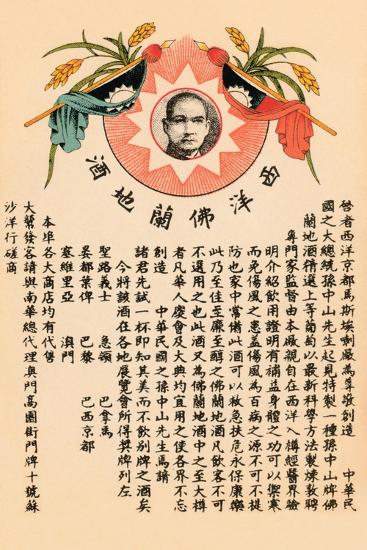 西洋佛蘭地酒
啓者西洋京都馬斯埃剌厰為尊敬創造　中華民
國之大總統孫中山先生起見特製一種孫中山牌佛
蘭地酒精選上等葡萄以最新科學方法製煉敦聘
專門家監督由本厰親自在西洋入樽經醫界驗
明介紹飲用證明有補益身體之功可以禦寒
而免傷風之患蓋傷風為百病之源不可不提
防也家中常備此酒可以救急扶危永保康樂
此乃至佳至廉至醇之佛蘭地酒凡飲客不可
不選用之也此酒又為佛蘭地酒中之至大樽
者凡華人慶會及大典均宜用之使各界不忘
創造　中華民國之孫中山先生焉請
諸君先試一杯即知其美而不飲别牌之酒矣
今將該酒在各地展覽會所得奬牌列左
聖路義士　恳頓　巴拿馬
晏都葉俾　巴黎　巴西京都
塞維里亞　澳門
本埠各大商店均有代售
大幫發客請與南華總代理澳門高園街門牌十號蘇
沙洋行磋商